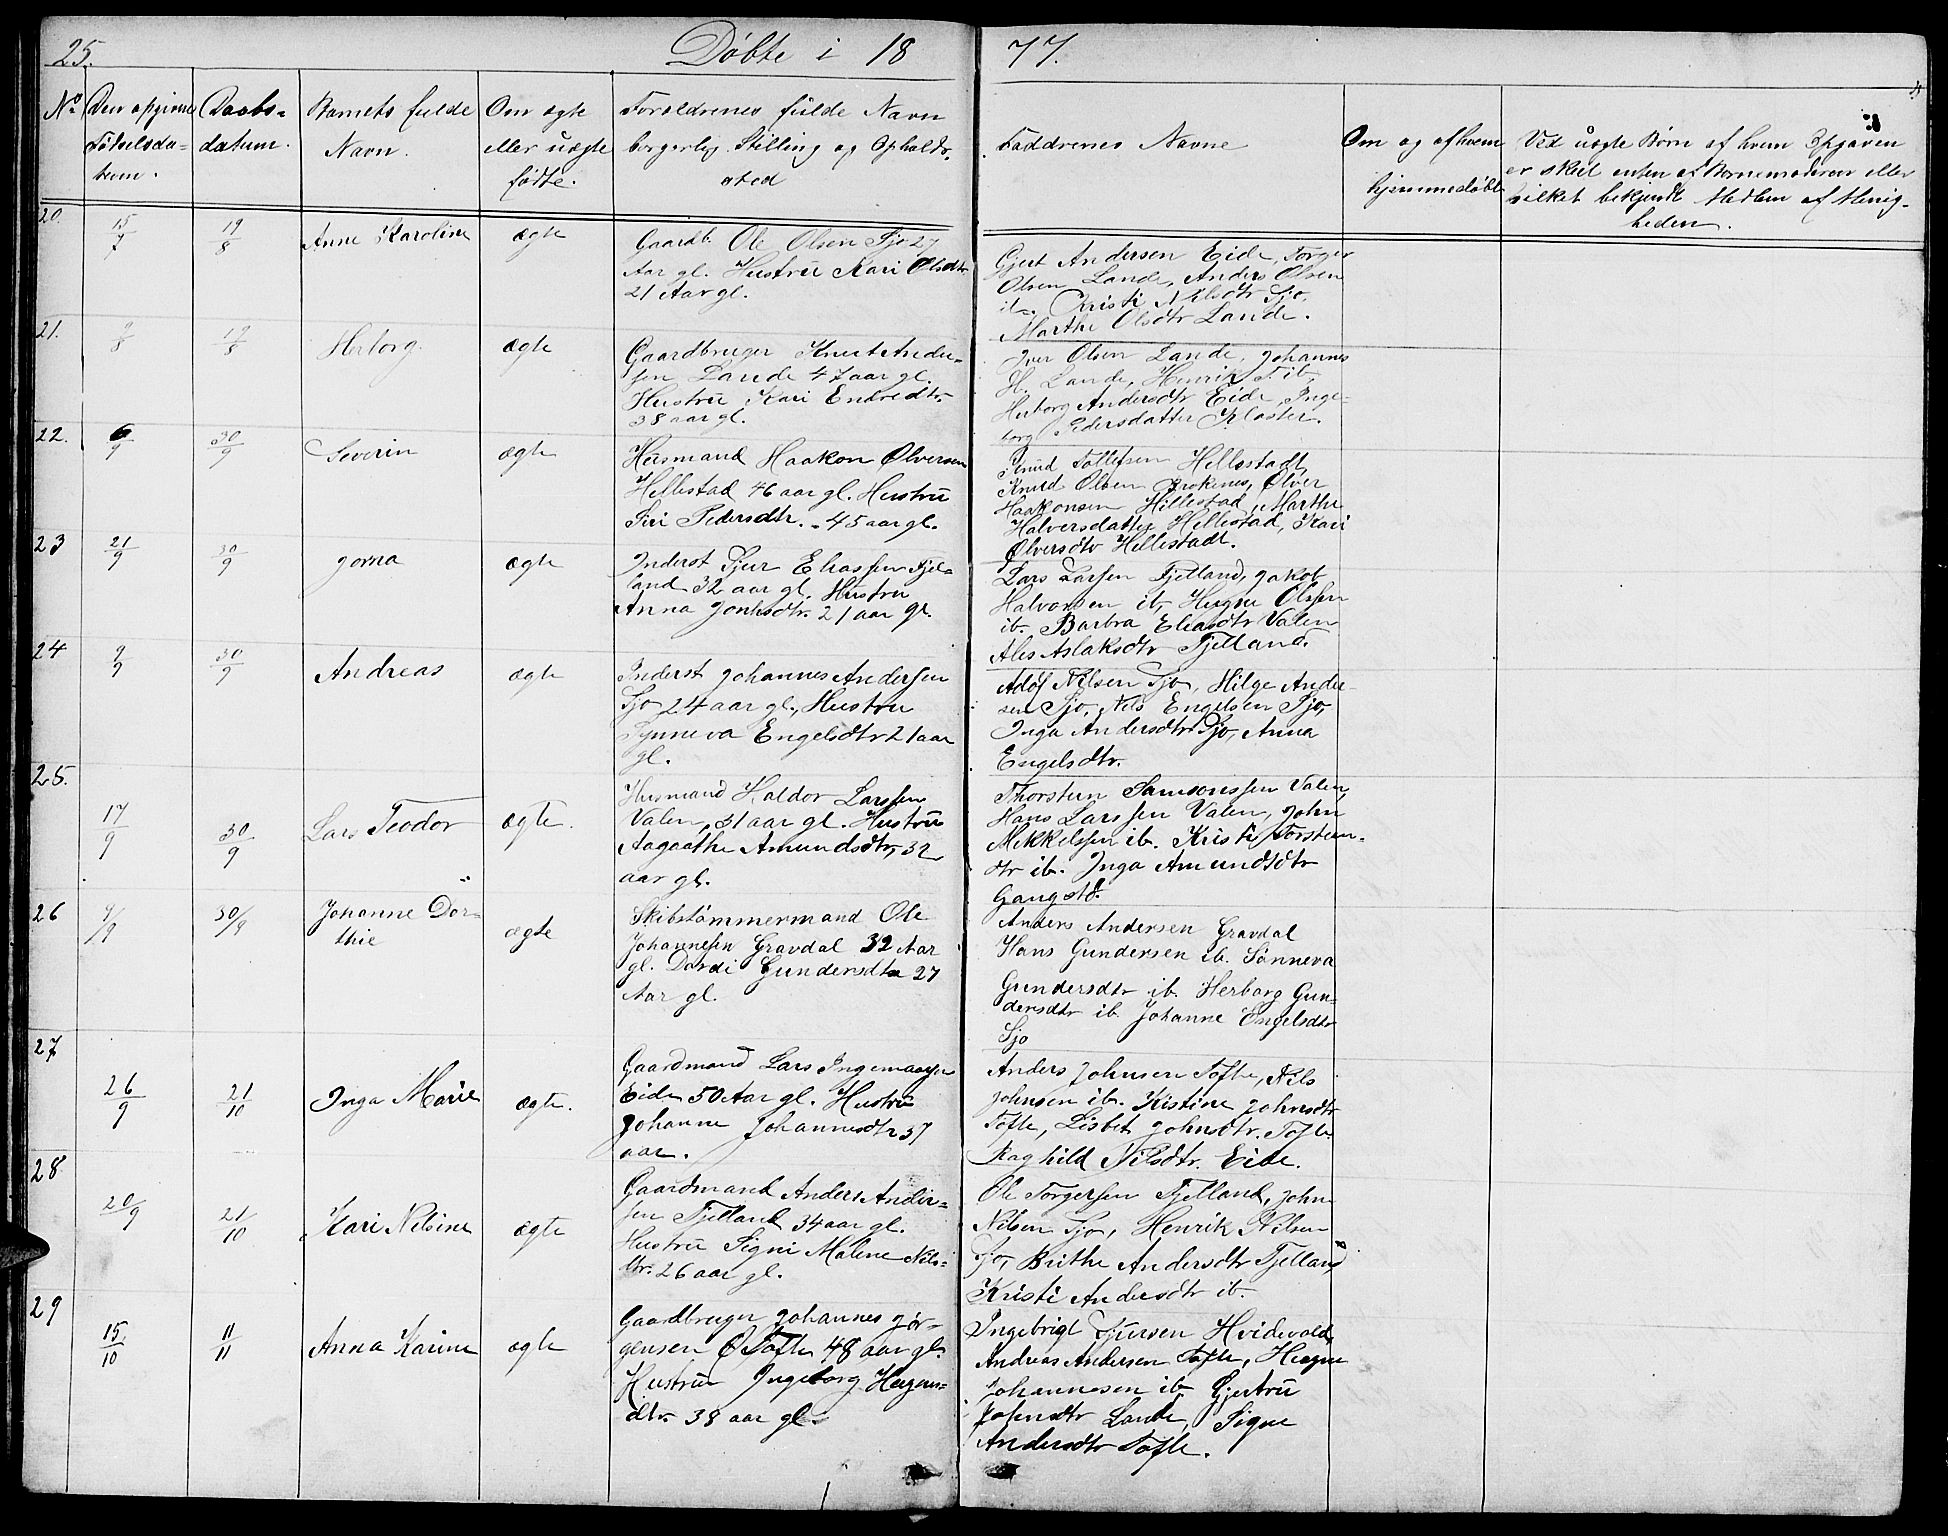 25.
Døbte i 18
77.
No
Den opgivne
Fødselsda-
tum.
Daabs-
datum.
Barnets fulde
Navn.
Om ægte
eller uægte
fødte.
Forældrenes fulde Navn
borgerlig Stilling og Opholds-
sted
Faddrenes Navne
Om og af hvem
hjemmedøbt
Ved uægte Børn af hvem Opgaven
er skeet enten af Barnemoderen eller
hvilket bekjendt Medlem af Menig-
heden.
20.
15/7
19/8
Anne Karoline
ægte
Gaardb. Ole Olsen Sjo 27
Aar gl. Hustru Kari Olsdtr
21 Aar gl.
Gjert Andersen Eide, Torger
Olsen Lande, Anders Olsen
ib. Kristi Nilsdtr Sjo,
Marthe Olsdtr Lande.
21.
19/8
Herborg.
ægte
Gaardbruger Knut Ander-
sen Lande 47 aar gl.
Hustru Kari Endredtr.
38 aar gl.
Iver Olsen Lande, Johannes
H. Lande, Henrik T. ib,
Herborg Andersdtr Eide, Inge-
borg Pedersdatter Kloster.
22.
6/9
30/9
Severin
ægte
Husmand Haakon Ølversen
Hellestad 46 aar gl. Hustru
Siri Pedersdtr. 45 aar gl.
Knud Tollefsen Hellestadt,
Knud Olsen Brokenes, Ølver
Haakonsen Hillestad, Marthe
Halversdatter Hellestad, Kari
Ølversdtr Hellestadt.
23
21/9
30/9
Jorna
ægte
Inderst Sjur Eliassen Fjel-
land 32 aar gl. Hustru
Anna Jonsdtr. 21 aar gl.
Lars Larssen Fjelland, Jakob
Halvorsen ib, Hagne Olssen
ib. Barbra Eliasdtr Valen
Alis Aslaksdtr Fjelland.
24
9/9
30/9
Andreas
ægte
Inderst Johannes Andersen
Sjo 24 aar gl., Hustru
Synneva Engelsdtr 21 aar
gl.
Adof Nilsen Sjo, Hilge Ander-
sen Sjo, Nils Engelsen Sjo,
Inga Andersdtr Sjo, Anna
Engelsdtr.
25.
17/9
30/9
Lars Teodor
ægte.
Husmand Haldor Larssen
Valen, 31 aar gl. Hustru
Aagaathe Amundsdtr, 32
aar gl.
Thorstein Samsonssen Valen,
Hans Larssen Valen, John
Mekkelssen ib. Kristi Torsteins-
dtr ib. Inga Amundsdtr
Gangstd.
26
9/9
30/9
Johanne Dor-
thie
ægte
Skibstømmermand Ole
Johannesen Gravdal 32 Aar
gl. Dordi Gundersdtr 27
Aar gl.
Anders Andersen Gravdal
Hans Gundersen ib. Sønneva
Gundersdtr ib. Herborg Gun-
dersdtr ib. Johanne Engelsdtr
Sjo
27
26/9
21/10
Inga Marie
ægte.
Gaardmand Lars Ingemaasen
Eide 50 Aar gl. Hustru
Johanne Johannesdtr 37
aar.
Anders Johnsen Tofte, Nils
Johnsen ib. Kistine Johnsdtr
Tofte, Lisbet Johnsdtr. Tofte
Raghild Nilsdtr. Eide.
28
20/9
21/10
Kari Nilsine
ægte
Gaardmand Anders Ander-
sen Fjelland 34 aar gl.
Hustru Signi Malene Nils-
dtr. 26 aar gl.
Ole Torgersen Fjelland, John
Nilsen Sjo, Henrik Nilsen
Sjo, Brithe Andersdtr Fjelland
Kristi Andersdtr ib.
29
15/10
11/11
Anna Karine
ægte
Gaardbruger Johannes Jør-
gensen Tofte 48 aar gl.
Hustru Ingeborg Hagens-
dtr. 38 aar gl.
Ingebrigt Sjursen Hvidevold,
Andreas Andersen Tofte, Hagne
Johannesen ib. Gjertru
Johnsdtr Lande, Signe
Andersdtr Tofte.